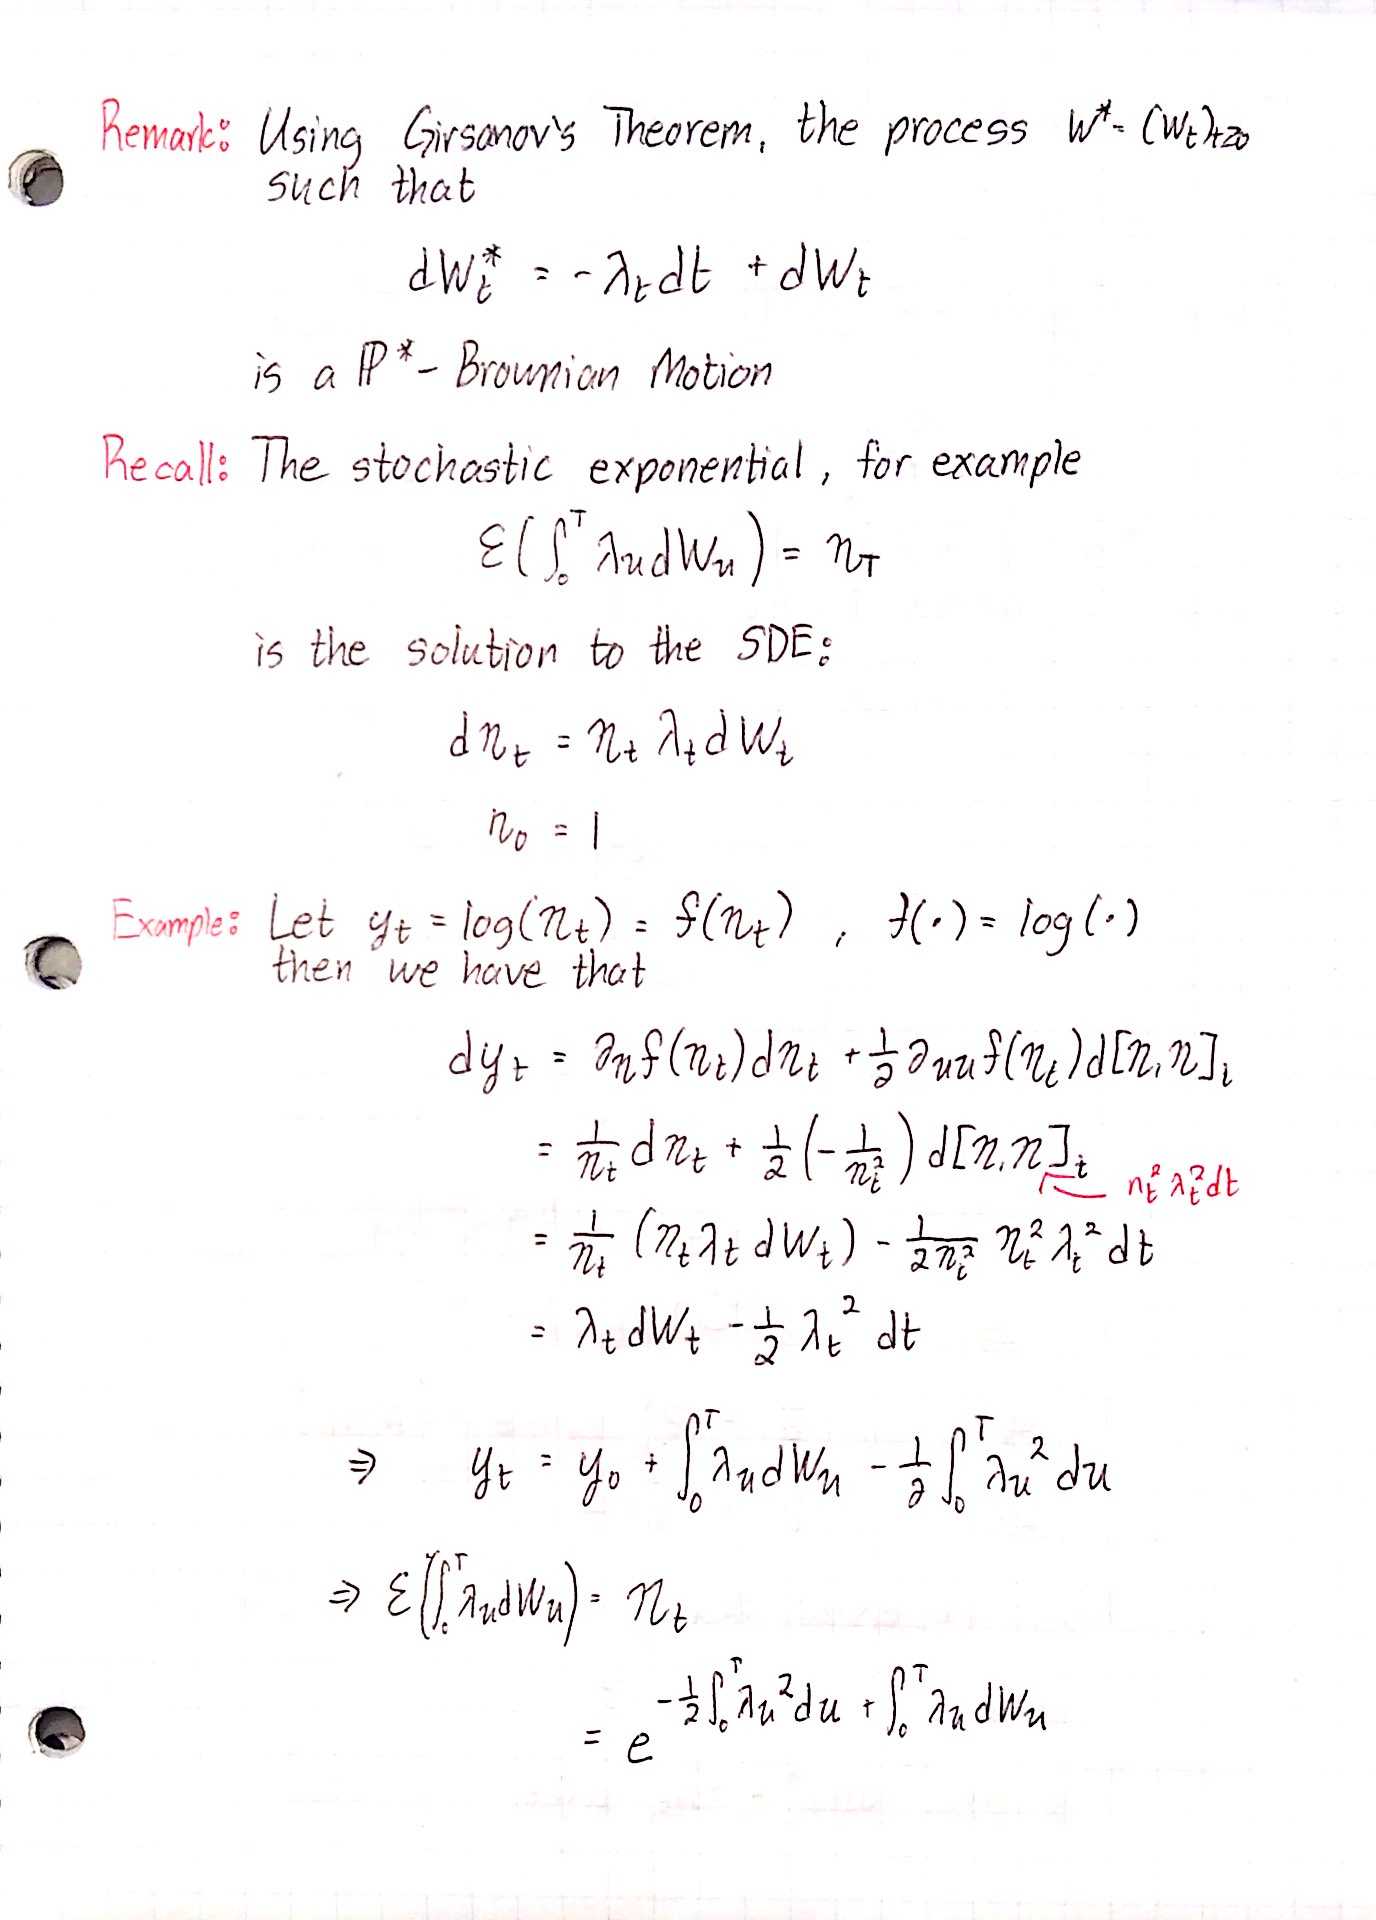 Remark: Using Girsanov's Theorem, the process W* = (Wt)t≥0
such that
dWt* = -λt dt + dWt
is a ℙ* - Brownian Motion
Recall: The stochastic exponential, for example
ℰ(∫₀ᵀ λu dWu) = ηT
is the solution to the SDE:
dηt = ηt λt dWt
η0 = 1
Example: Let yt = log(ηt) = f(ηt) , f(·) = log(·)
then we have that
dyt = ∂η f(ηt) dηt + 1/2 ∂uu f(ηt) d[η,η]t
= 1/ηt dηt + 1/2 (-1/ηt²) d[η,η]t
ηt² λt² dt
= 1/ηt (ηt λt dWt) - 1/2ηt² ηt² λt² dt
= λt dWt - 1/2 λt² dt
⇒ yt = y0 + ∫₀ᵀ λu dWu - 1/2 ∫₀ᵀ λu² du
⇒ ℰ(∫₀ᵀ λu dWu) = ηt
= e^(-1/2 ∫₀ᵀ λu² du + ∫₀ᵀ λu dWu)